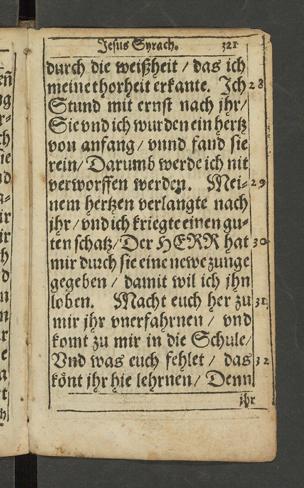 Jesus Syrach. 321
durch die weißheit / das ich
meine thorheit erkante. Ich 28
Stund mit ernst nach jhr /
Sie vnd ich wurden ein hertz
von anfang / vnnd fand sie
rein / Darumb werde ich nit
verworffen werden. Mei- 29
nem hertzen verlangte nach
jhr / vnd ich kriegte einen gu-
ten schatz / Der HERR hat 30
mir durch sie eine newe zunge
gegeben / damit wil ich jhn
loben. Macht euch her zu 31
mir jhr vnerfahrnen / vnd
komt zu mir in die Schule /
Vnd was euch fehlet / das 32
könt jhr hie lehrnen / Denn
jhr